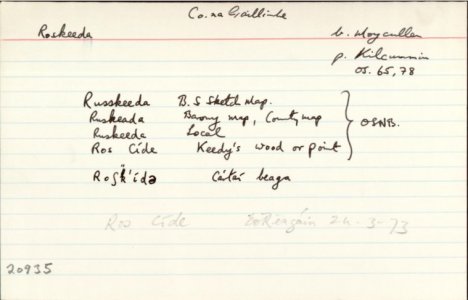 Co. na Gaillimhe
Roskeeda
b. Moycullen
p. Kilcummin
OS. 65, 78
Russkeeda B.S Sketch Map.
Ruskeada Barony map, County map
Ruskeeda Local
Ros Cíde Keedy's wood or point
OSNB.
Cártaí beaga
Ros Cíde 24-3-73
20935